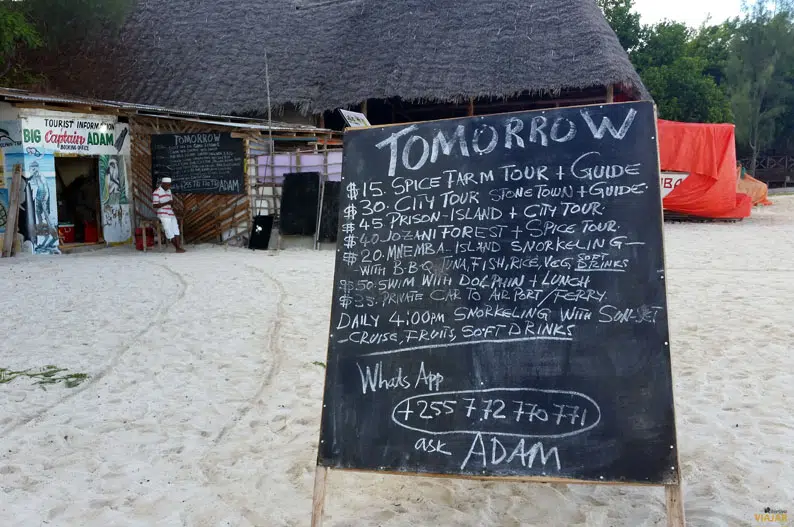 TOURIST INFORMATION
BIG Captain ADAM
BOOKING OFFICE
TOMORROW
ADAM
TOMORROW
$15. SPICE FARM TOUR + GUIDE
$30. CITY TOUR STONETOWN + GUIDE.
$45. PRISON-ISLAND + CITY TOUR.
$40. JOZANI FOREST + SPICE TOUR.
$20. MNEMBA-ISLAND SNORKELING -
- WITH B.B.Q TUNA, FISH, RICE, VEG, SOFT DRINKS
$50. SWIM WITH DOLPHIN + LUNCH
$35. PRIVATE CAR TO AIR PORT / FERRY.
DAILY 4:00PM SNORKELING WITH SUN-SET
- CRUISE, FRUITS, SOFT DRINKS
Whats App
+255 772 770 771
ask ADAM
VIAJAR